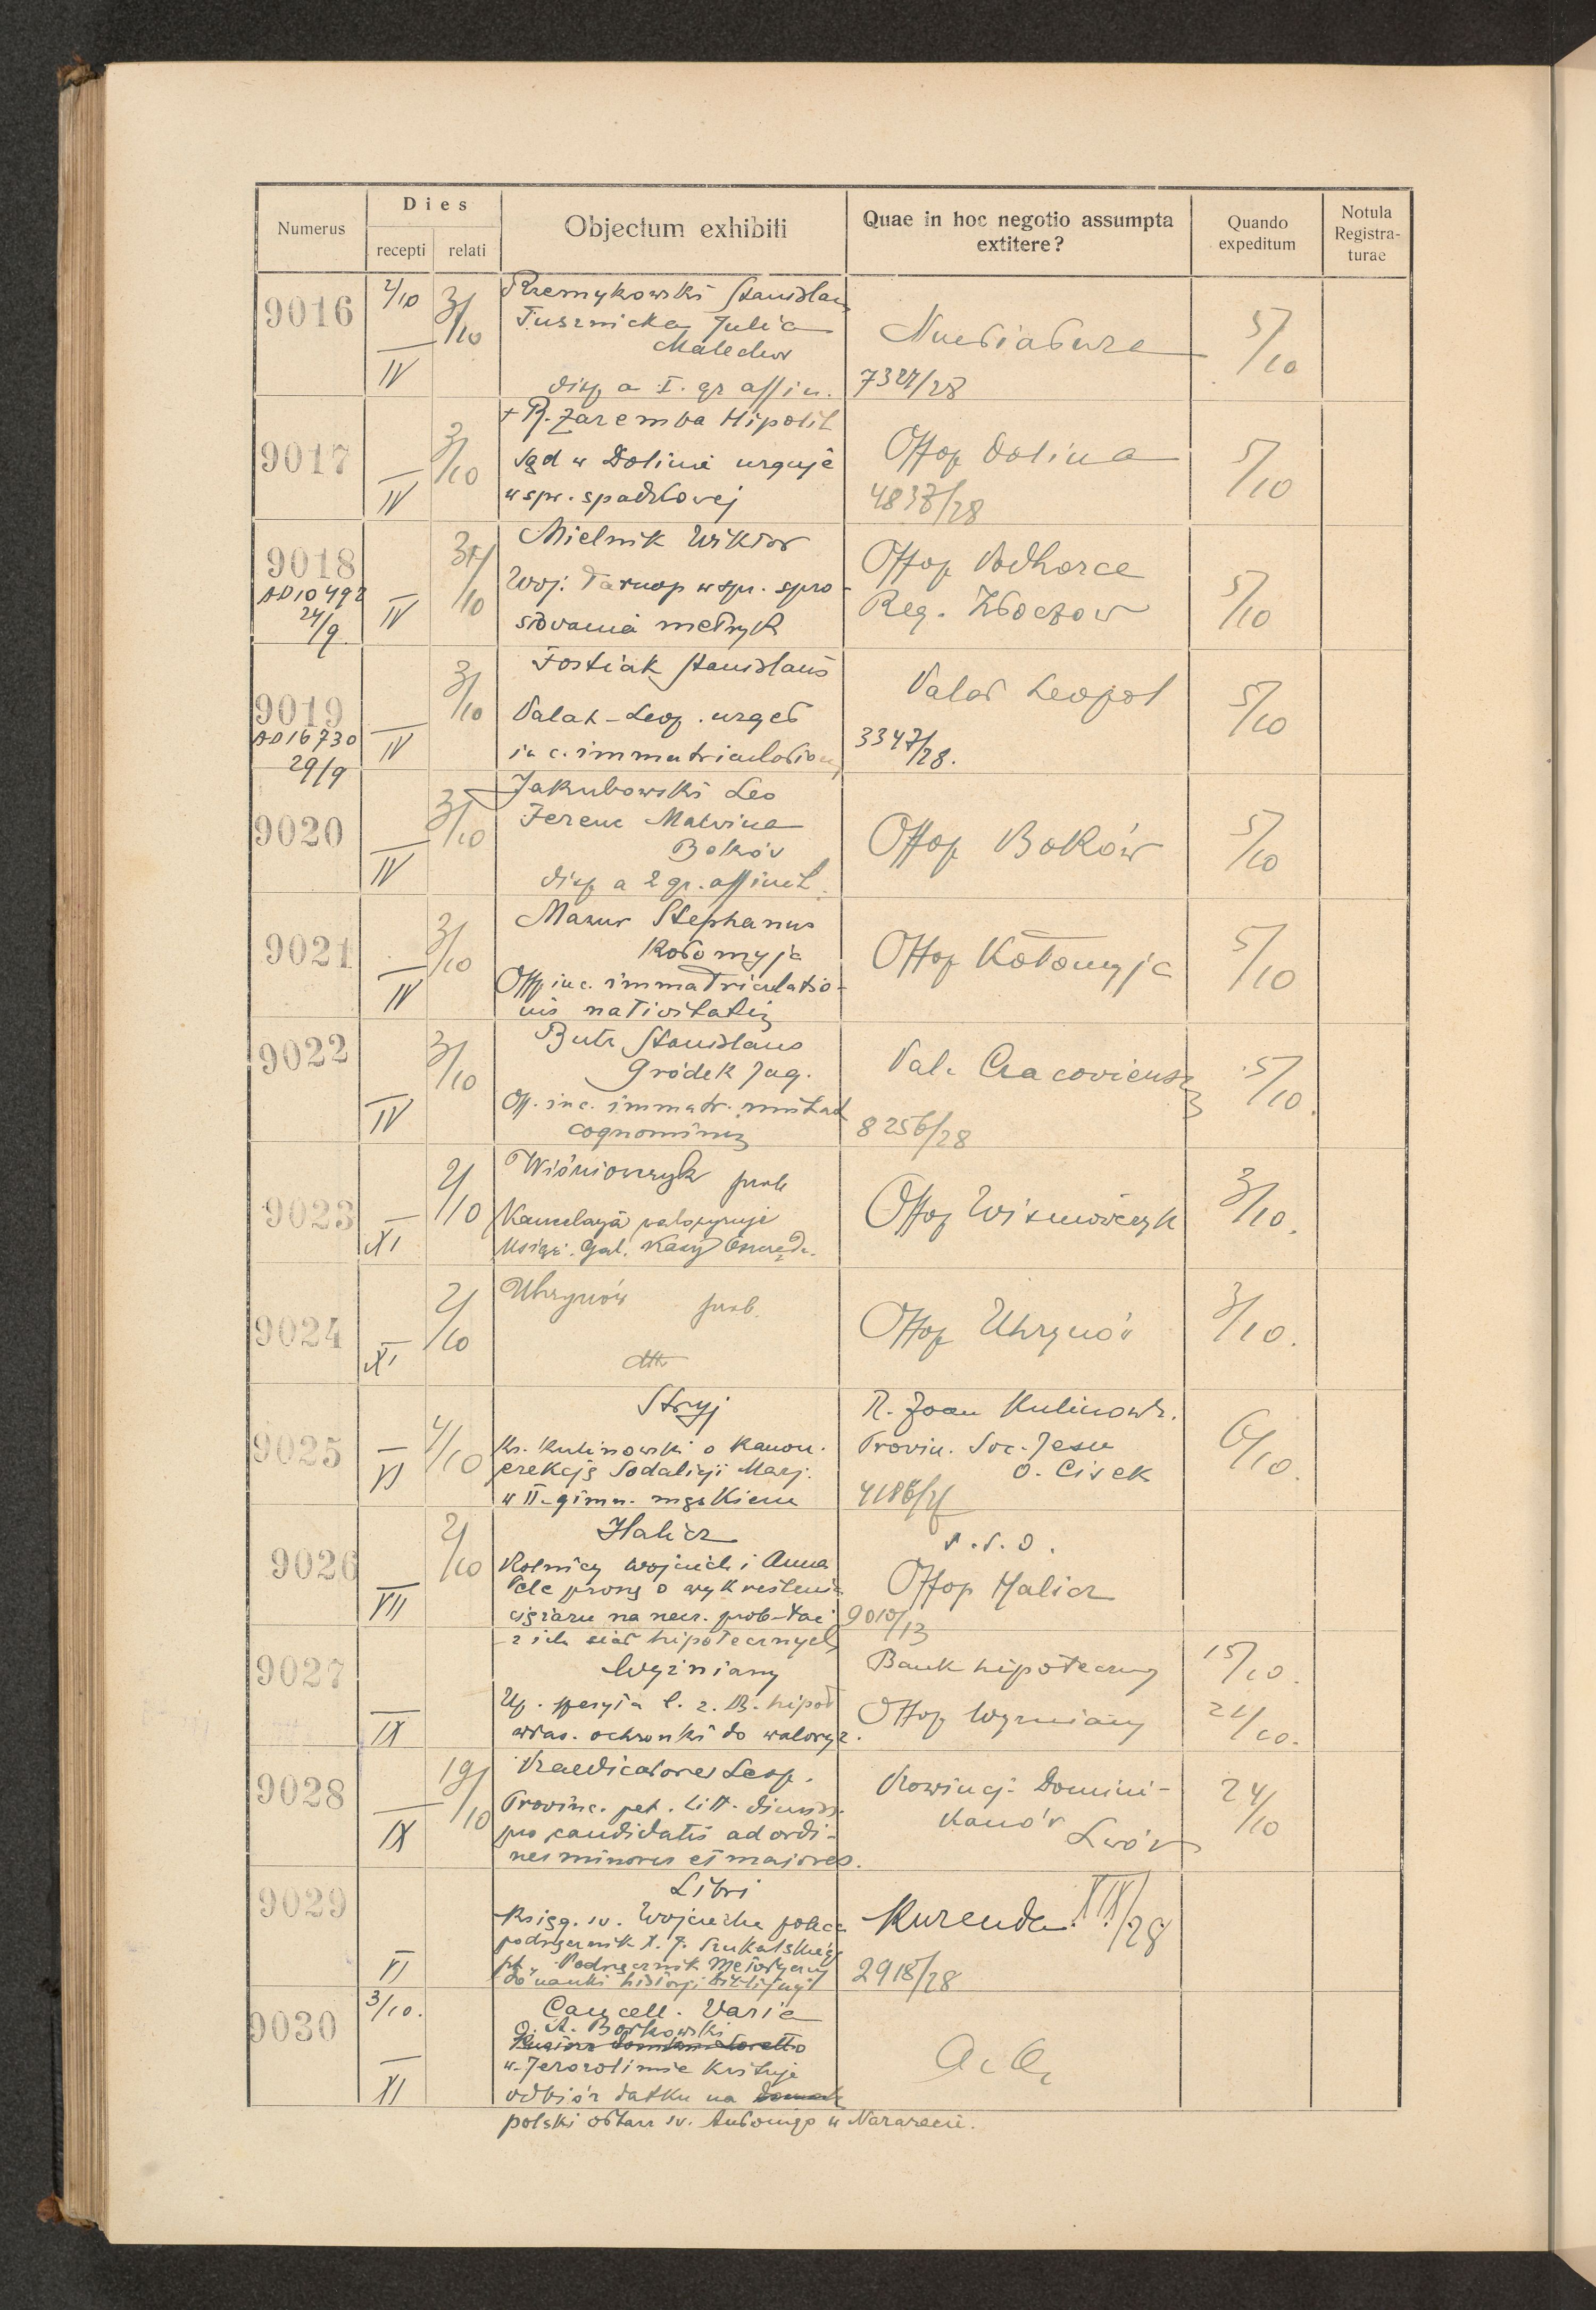 Numerus
Dies
recepti relati
Objectum exhibiti
Quae in hoc negotio assumpta
extitere?
Quando
expeditum
Notula
Registra-
turae
9016 2/10 3/10 IV
Przemykowski Stanislaus
Tusznicka Julia
Malechów
disp a I. gr affin.
Nuntiatura
7327/28
5/10
9017 3/10 IV
+ R. Zaremba Hipolit
Sąd w Dolinie urguje
w spr. spadkowej
Offop Dolina
4837/28
5/10
9018
AD 10492
24/9
IV
Mielnik Wiktor
Woj. Tarnop w spr. spro-
stowania metryk
Offop Podhorce
Reg. Złoczow
5/10
9019
AD 16730
29/9
3/10 IV
Stanislaus
Palat-Leop. urget
in c. immatriculation
Palat Leopol
3347/28.
5/10
9020 3/10 IV
Jakubowski Leo
Ferenc Malvina
Boków
disp a 2 gr. affinit.
Offop Boków
5/10
9021 3/10 IV
Mazur Stephanus
Kołomyja
Offop in c. immatriculatio-
nis nativitatis
Offop Kołomyja
5/10
9022 3/10 IV
Butr Stanislaus
Gródek Jag.
Off. in c. immatr. mutat
cognominis
Pal. Cracoviensis
8256/28
5/10.
9023 2/10 XI
Wiśniowczyk prob
Kancelarja
Książ. Gal. Kasy Oszczęd.
Offop Wiśniowczyk
3/10.
9024 2/10 XI
Uhrynów prob.
Offop Uhrynów
3/10.
9025 4/10 VI
Stryj
Ks. Kulinowski o kanon.
erekcję Sodalicji Marj.
w II-gimn. męskiem
R. Joan Kulinowski.
Provin. Soc. Jesu
O. Cisek
6/10.
9026 2/10 VII
Halicz
Rolnicy Wojciech i Anna
Pelc proszą o wykreślenie
ciężaru na rzecz. prob-tac
z ich ciał hipotecznych
Offop Halicz
9010/13
9027 IX
Wyżniany
b. z. B. hipot
włas. ochronki do waloryz.
Bank hipoteczny
Offop Wyżniany
15/10.
24/10.
9028 19/10 IX
Praedicatores Leop.
Provinc. pet. litt. dimiss.
pro candidatis ad ordi-
nes minores et majores.
Prowincj. Domini-
kanów
Lwów
24/10
9029 VI
Libri
Księg. św. Wojciecha poleca
podręcznik X. J. Szukalskiego
pt. „Podręcznik Metodyczny
do nauki historji biblijnej"
Kurenda XII/28
2918/28
9030 3/10. XI
Cancell. Varia
O. A. Borkowski
w Jerozolimie kwituje
odbiór datku na
polski ołtarz św. Antoniego w Nazarecie.
A. A.